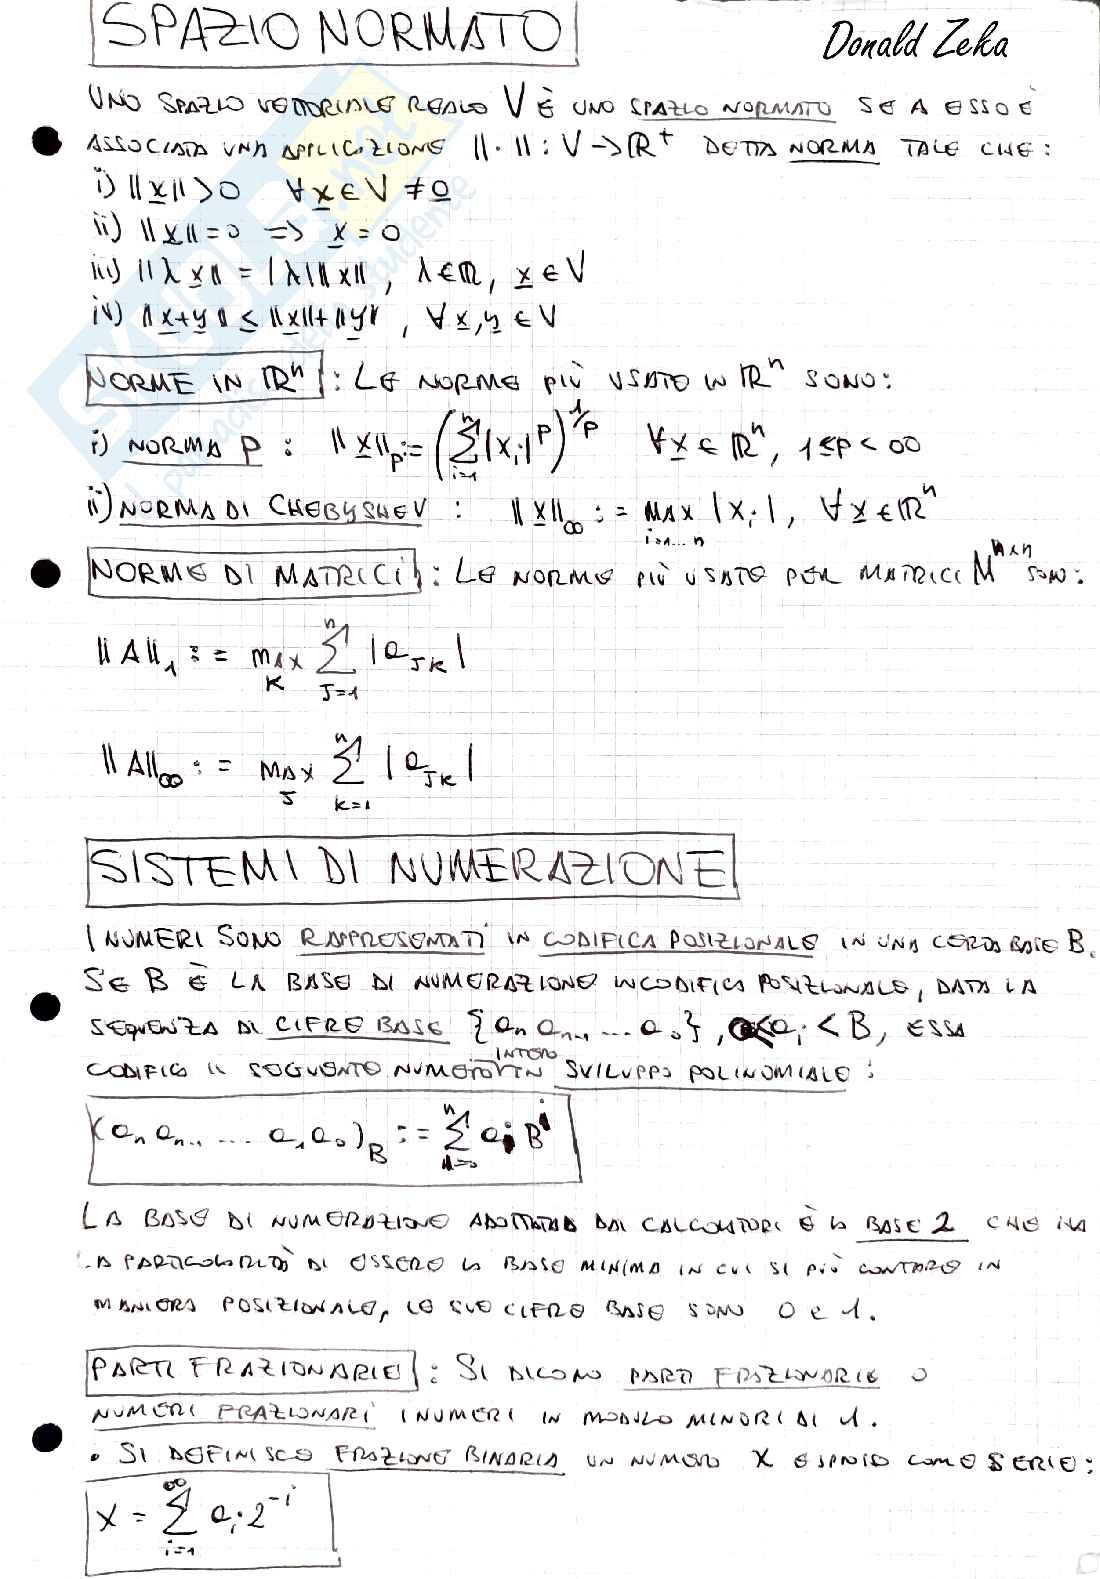 SPAZIO NORMATO
Donald Zeka
UNO SPAZIO VETTORIALE REALE V È UNO SPAZIO NORMATO SE A ESSO È
ASSOCIATA UNA APPLICIZIONE ||·|| : V → ℝ⁺ DETTA NORMA TALE CHE:
i) ||x|| > 0 ∀ x ∈ V ≠ 0
ii) ||x|| = 0 => x = 0
iii) ||λ x|| = |λ| ||x||, λ ∈ ℝ, x ∈ V
iv) ||x+y|| ≤ ||x|| + ||y||, ∀ x, y ∈ V
NORME IN ℝⁿ : LE NORME PIÙ USATE IN ℝⁿ SONO:
i) NORMA P : ||x||_p := (∑_{i=1}^{n} |x_i|^p)^{1/p} ∀ x ∈ ℝⁿ, 1 ≤ p < ∞
ii) NORMA DI CHEBYSHEV : ||x||_∞ := MAX_{i=1...n} |x_i|, ∀ x ∈ ℝⁿ
NORME DI MATRICI : LE NORME PIÙ USATE PER MATRICI M^{n×n} SONO:
||A||_1 := MAX_K ∑_{J=1}^{n} |a_{JK}|
||A||_∞ := MAX_J ∑_{k=1}^{n} |a_{JK}|
SISTEMI DI NUMERAZIONE
I NUMERI SONO RAPPRESENTATI IN CODIFICA POSIZIONALE IN UNA CERTA BASE B.
SE B È LA BASE DI NUMERAZIONE IN CODIFICA POSIZIONALE, DATA LA
SEQUENZA DI CIFRE BASE {a_n a_{n-1} ... a_0}, 0<a_i < B, ESSA
CODIFICA IL SEGUENTE NUMERO INTERO IN SVILUPPO POLINOMIALE:
(a_n a_{n-1} ... a_1 a_0)_B := ∑_{i=0}^{n} a_i B^i
LA BASE DI NUMERAZIONE ADOTTATA DAI CALCOLATORI È LA BASE 2 CHE HA
LA PARTICOLARITÀ DI ESSERE LA BASE MINIMA IN CUI SI PIÒ CONTARE IN
MANIERA POSIZIONALE, LE SUE CIFRE BASE SONO 0 e 1.
PARTI FRAZIONARIE : SI DICONO PARTI FRAZIONARIE O
NUMERI FRAZIONARI I NUMERI IN MODULO MINORI DI 1.
• SI DEFINISCE FRAZIONE BINARIA UN NUMERO X ESPRESSO COME SERIE:
X = ∑_{i=1}^{∞} a_i · 2^{-i}